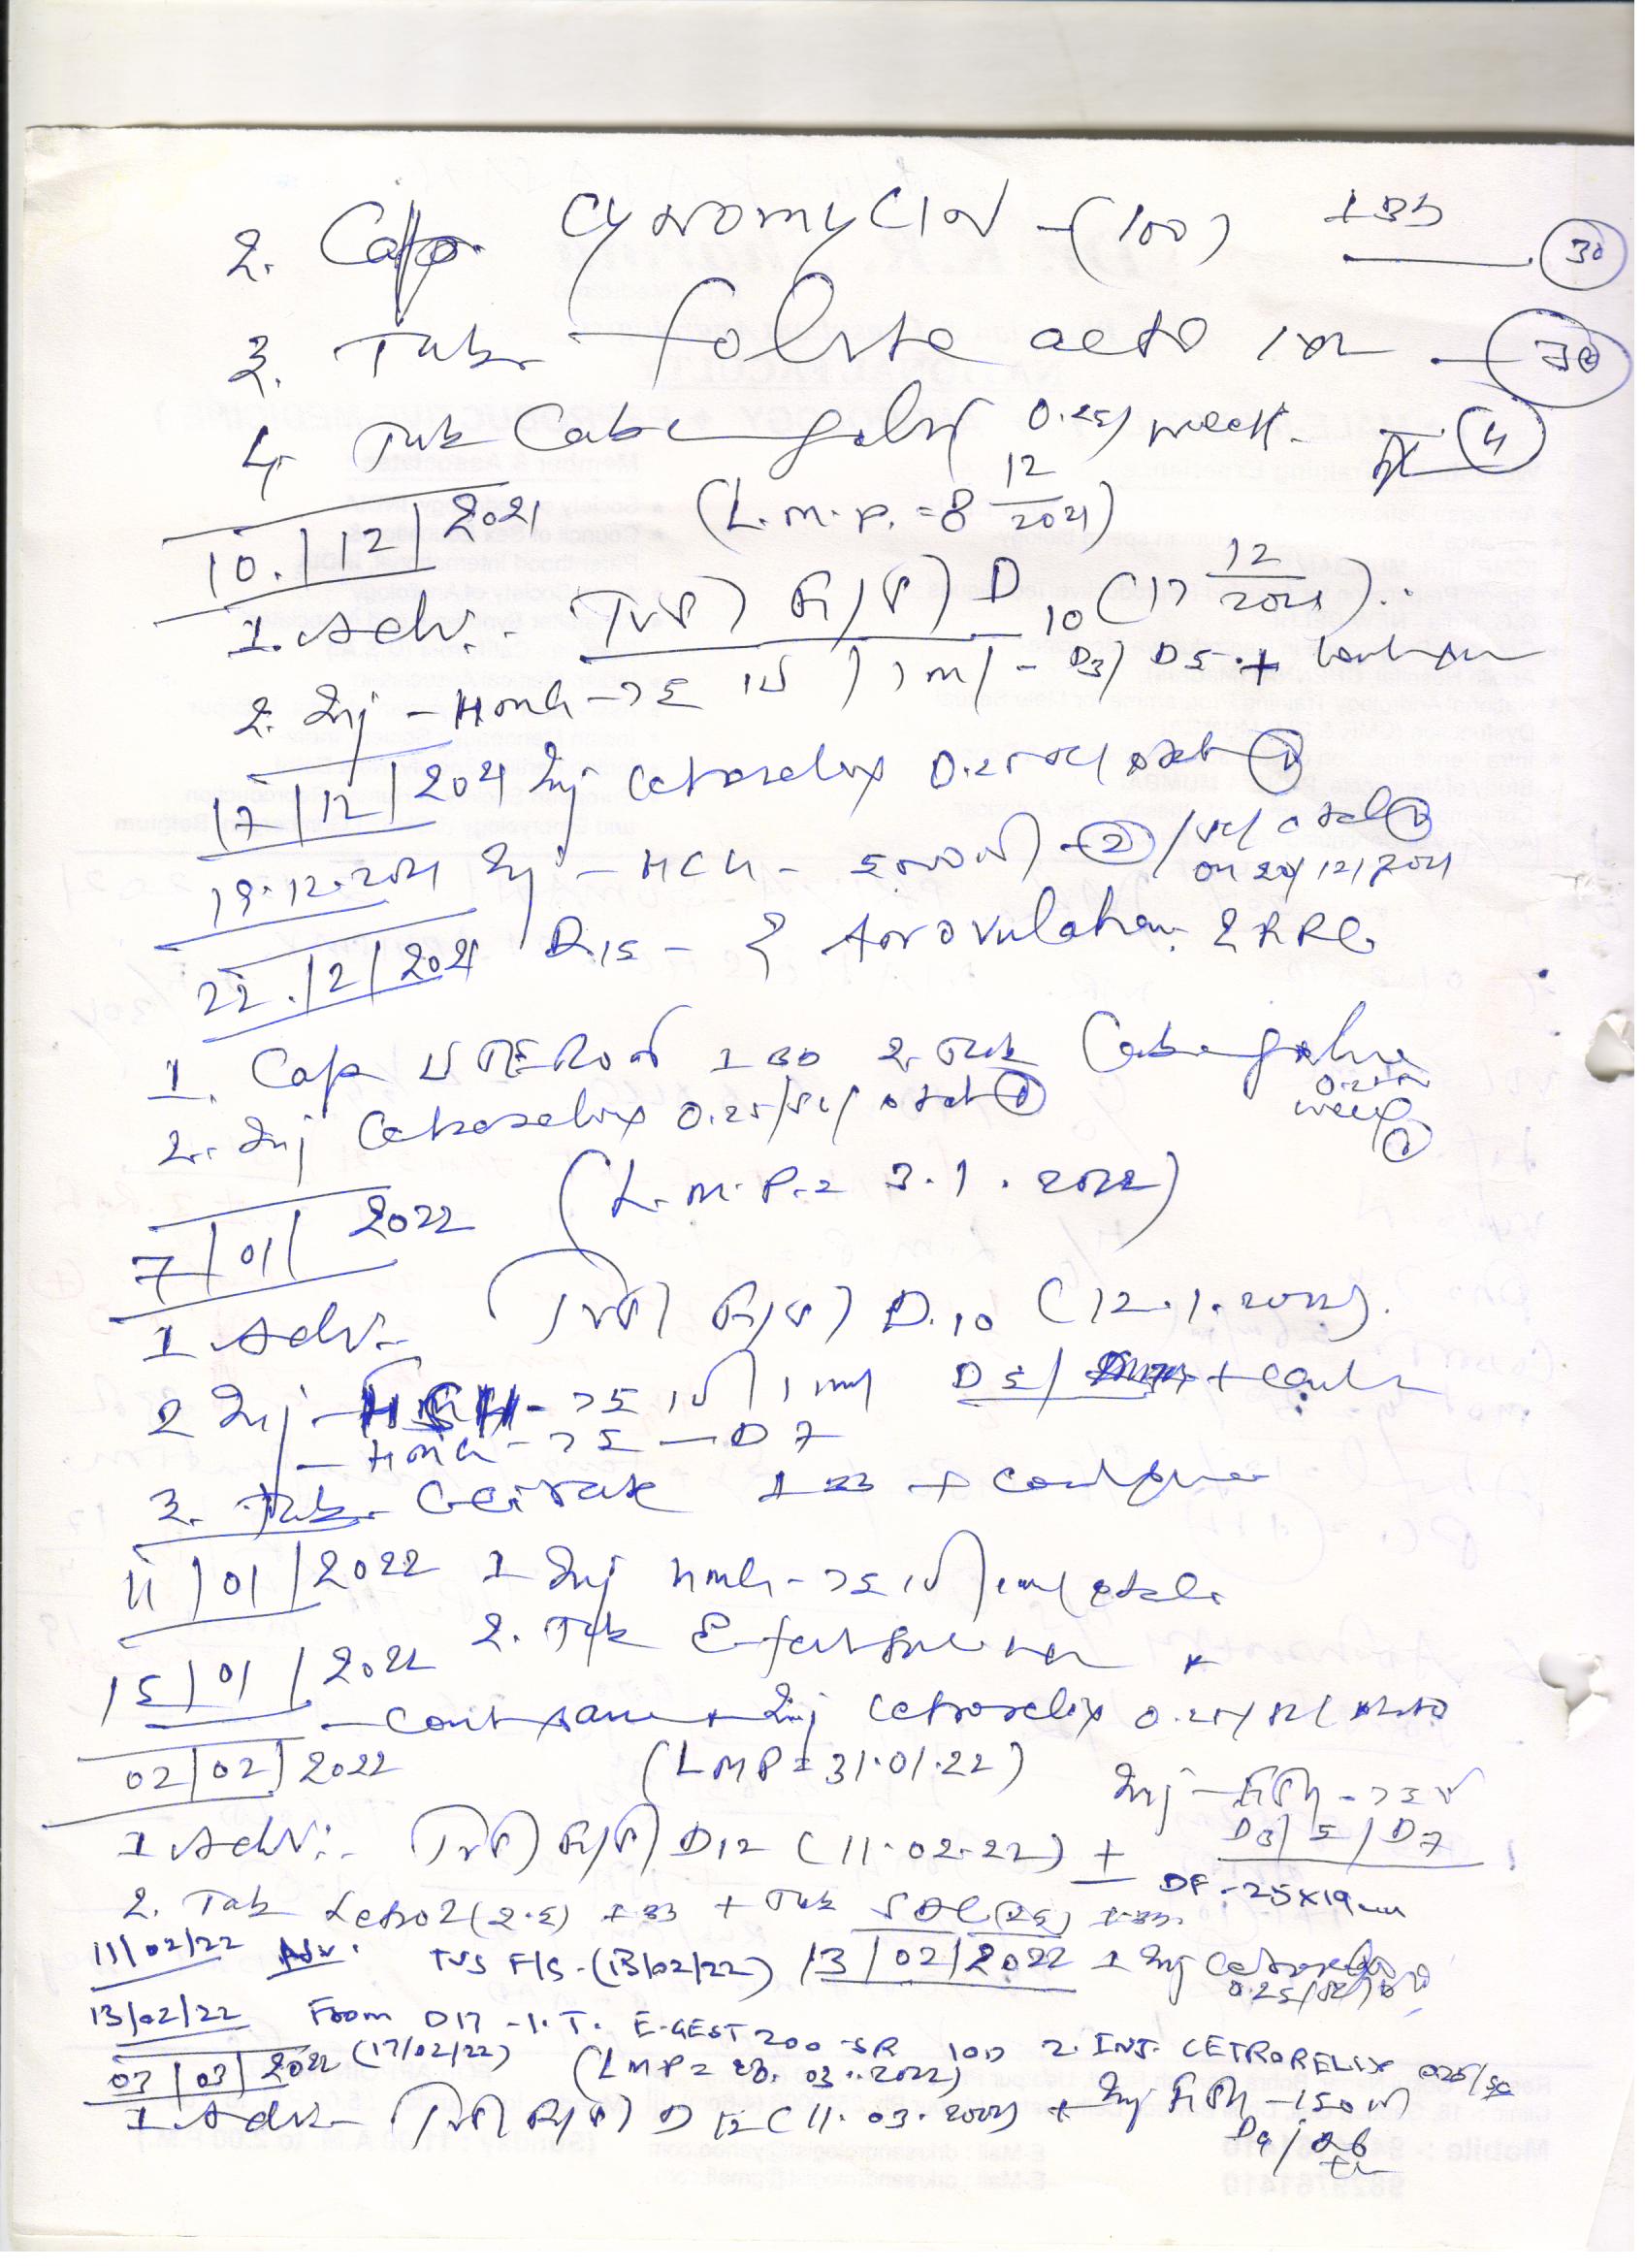 2. Cap. CYNOMYCIN - (100) 1 BD (30)
3. Tab. folite acto 1 OD - (30)
4. Tab Cabergolin 0.25/week. (4)
10.|12|2021 (L.M.P. = 8 12/2021)
1. Adv. - TVS) F/S) D10 (17 12/2021)..
2. Inj - HMG - 75 IU) IM/ - D3/ D5 + continue
17|12|2021 Inj Cetrorelix 0.25 SC/ stat (1)
19.12.2021 Inj - HCG - 5000 IU) - (2) / SC/ stat (1)
on 20/12/2021
22.|12|2021 D.15 -
1. Cap UTERON 1 BD 2. Tab Cabergoline
0.25
week
2. Inj Cetrorelix 0.25/SC/ stat (1)
7|01|2022 (L.M.P. = 3.1.2022)
1 Adv. - TVS) F/S) D.10 (12.1.2022).
2 Inj - 75 IU) IM/ D5/ + cont
- HMG - 75 - D7
3. Tab. 1 BD + continue
11|01|2022 1 Inj HMG - 75 IU) IM/ stat.
2. Tab
15|01|2022
- Cont same + Inj Cetrorelix 0.25/ SC/
02|02|2022 (LMP = 31.01.22) Inj - FSH - 75 IU
1 Adv:. TVS) F/S) D12 (11.02.22) + D3/5/D7
DF - 25X19mm
2. Tab Letroz (2.5) 1 BD + Tab (25) 1 BD.
11/02/22 Adv. TVS F/S - (13/02/22) 13|02|2022 1 Inj Cetrorelix
0.25/SC/
13/02/22 From D17 - 1. T. E-GEST 200-SR 1OD 2. INJ. CETRORELIX 0.25/SC
(17/02/22)
03|03|2022 (LMP = 03.2022)
1 Adv - TVS) F/S) D12 (11.03.2022) + Inj FSH - 150 IU